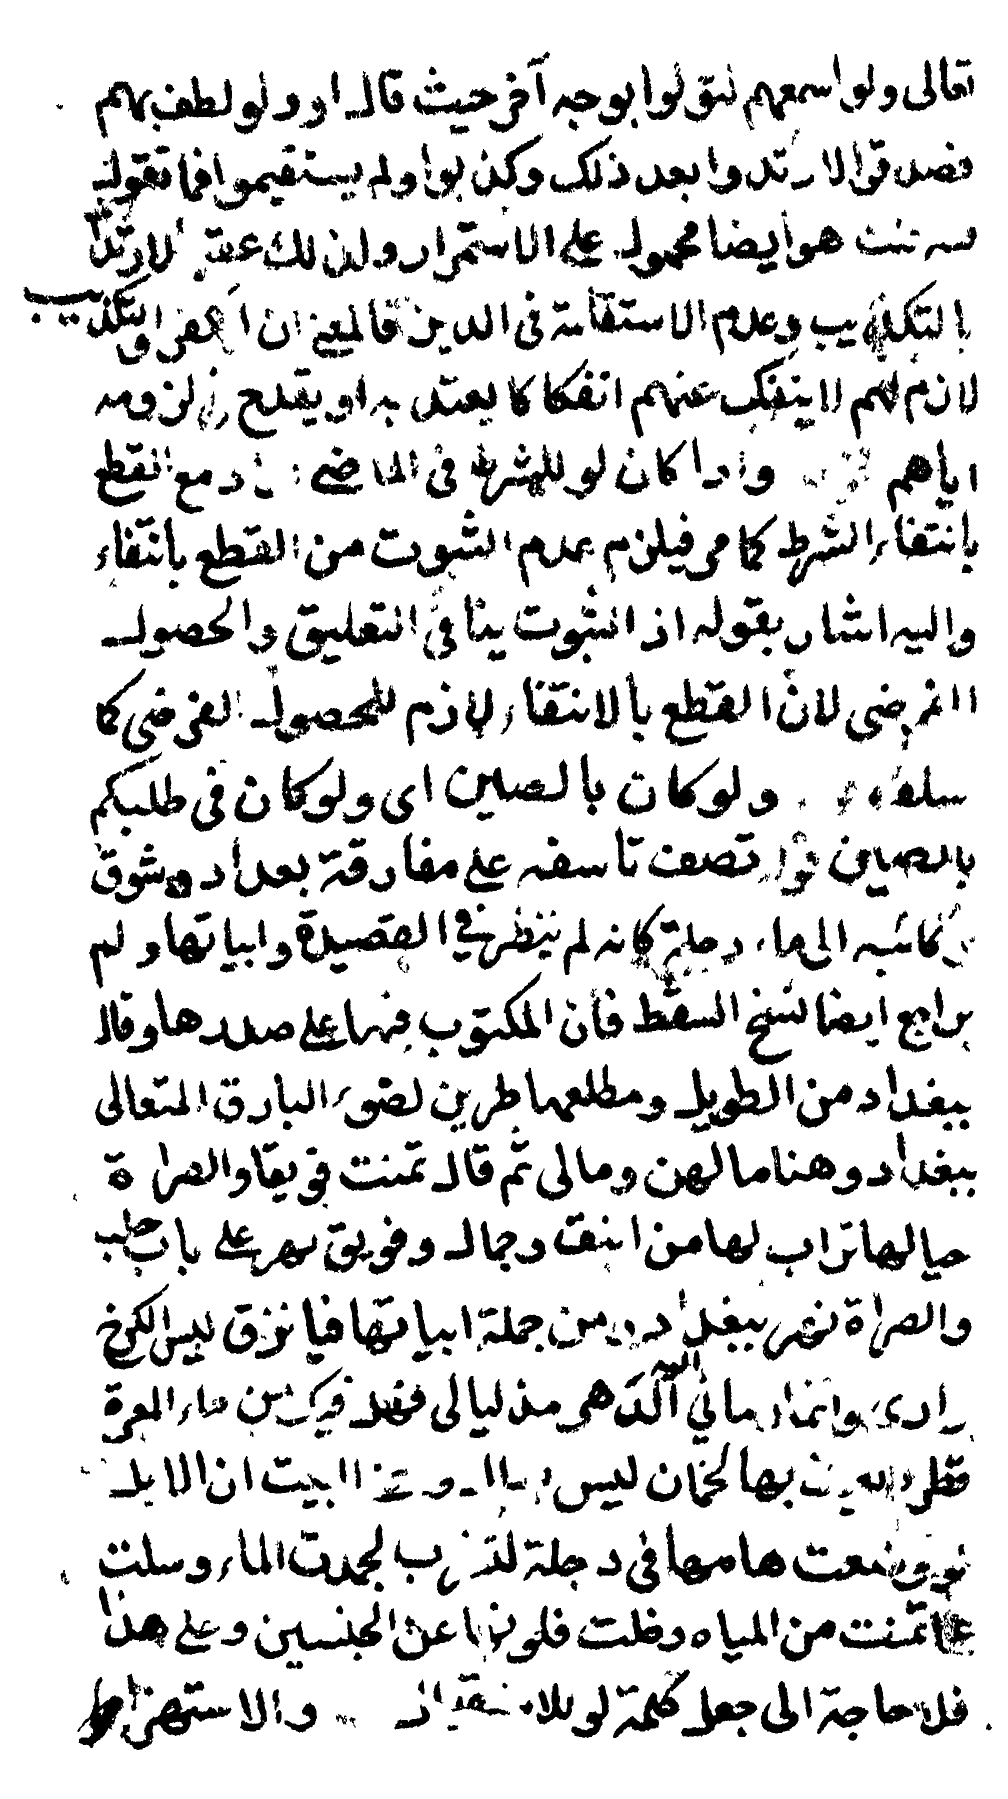 تعالى ولو اسمعهم لتولوا بوجه آخر حيث قال او ولو لطف بهم
فصدقوا لارتدوا بعد ذلك وكذبوا ولم يستقيموا فما تقول
هو ايضا محمول على الاستمرار ولذلك عقب الارتداد
بالتكذيب وعدم الاستقامة فى الدين فالمعنى ان الكفر والتكذيب
لازم لهم لا ينفك عنهم انفكاكا يعتد به او يقدح فى لزومه
اياهم واذا كان لو للشرط فى الماضى مع القطع
بانتفاء الشرط كما مر فيلزم عدم الثبوت من القطع بانتفاء
واليه اشار بقوله اذ الثبوت ينافى التعليق والحصول
الفرضى لان القطع بالانتفاء لازم للحصول الفرضى كما
سلف ولو كان بالصين اى ولو كان فى طلبكم
بالصين تصف تاسفه على مفارقة بغداد وشوق
ركائبه الى ماء دجلة كانه لم ينظر فى القصيدة وابياتها ولم
يراجع ايضا نسخ السقط فان المكتوب فيها على صدرها وقال
ببغداد من الطويل ومطلعها طربن لضوء البارق المتعالى
ببغداد وهنا ما لهن وما لى ثم قال تمنت قويقا والصراة
حيالها تراب لها من اينق وجمال وقويق نهر على باب حلب
والصراة نهر ببغداد ومن جملة ابياتها فيا برق ليس الكرخ
دارى وانما رمانى اليه الدهر منذ ليالى فهل فيك من ماء المعرة
قطرة بها ظمان ليس وهذا البيت ان الابل
لو وضعت هامها فى دجلة لتشرب لجمدت الماء وسلت
عما تمنت من المياه وظلت عن الجنسين وعلى هذا
فلا حاجة الى جعل كلمة لو للاستقبال والاستهزاء